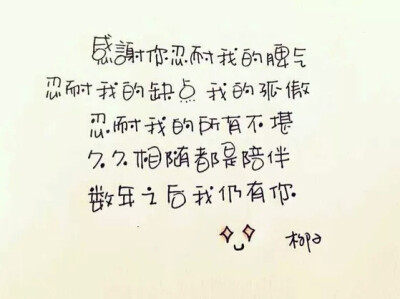 感謝你忍耐我的脾气
忍耐我的缺点 我的孤傲
忍耐我的所有不堪
久久相随都是陪伴
数年之后我仍有你.